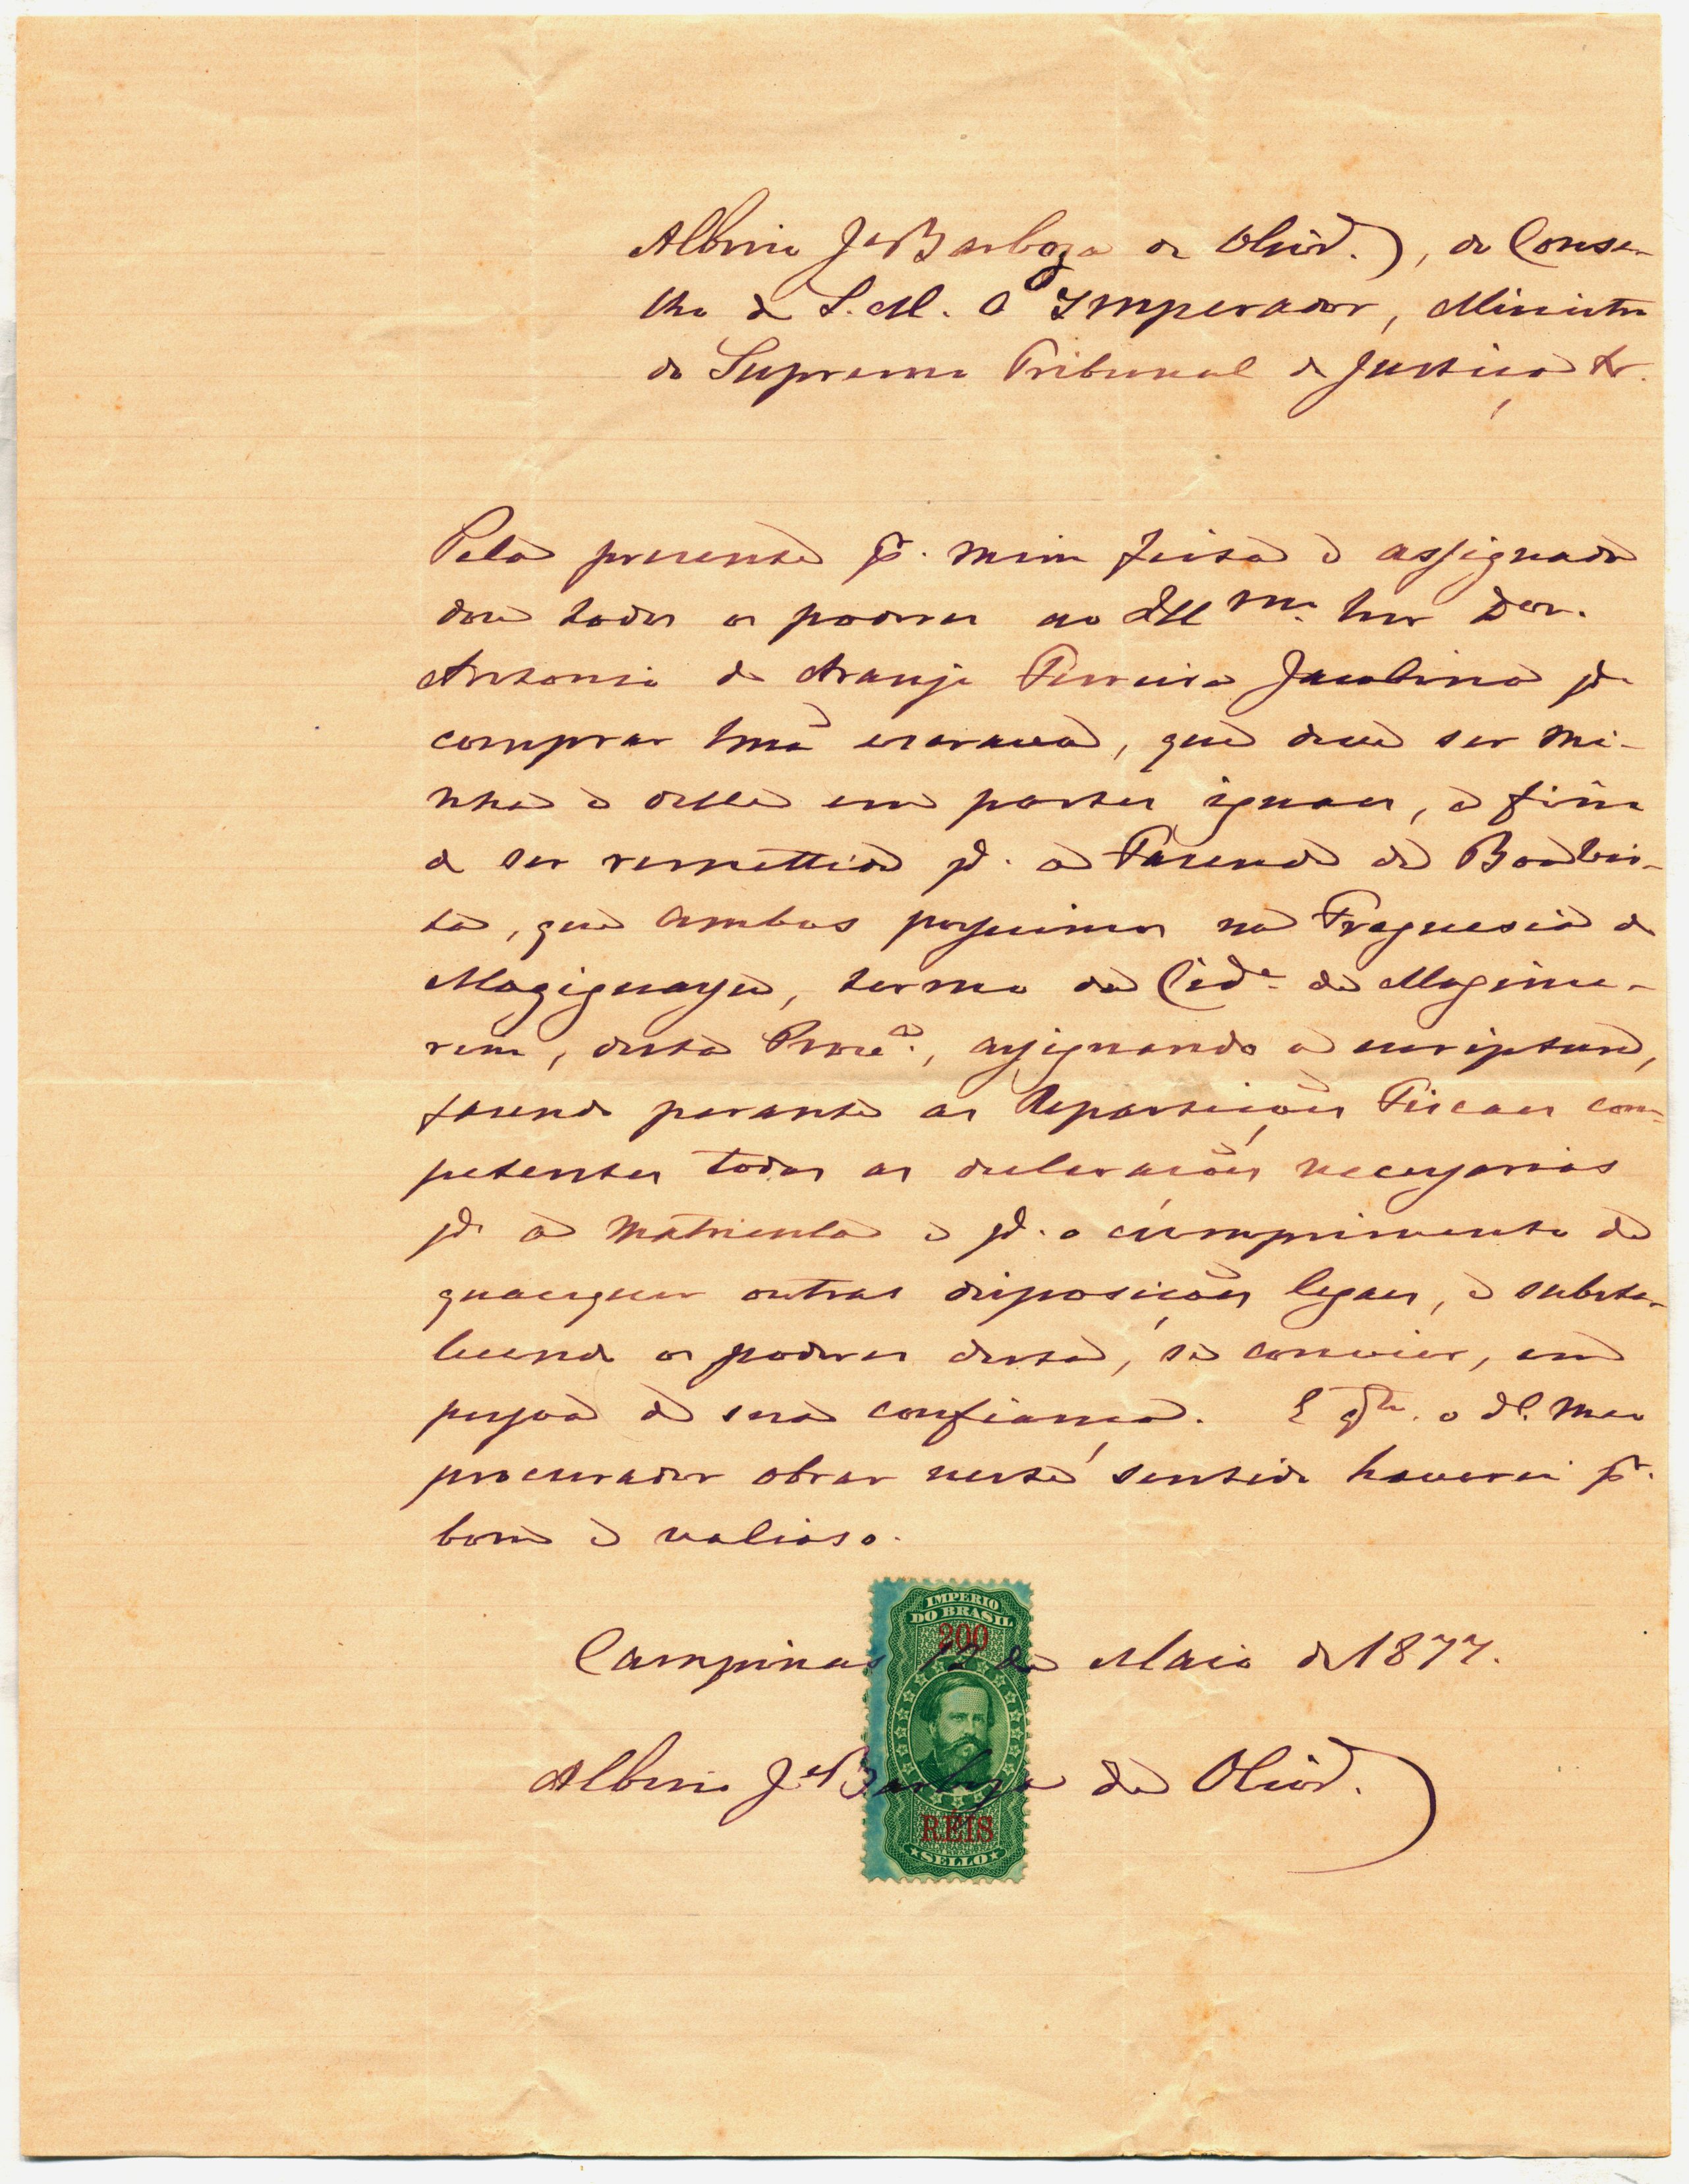 Albino Jé Barboza de Olivrª., do Conse-
lho de S. M. O Imperador, Ministro
do Supremo Tribunal de Justiça &.
Pela presente pr. mim feita e assignada
dou todos os poderes ao Illmo. Snr Dor.
Antonio de Araujo Ferreira Jacobina pª.
comprar huã escrava, que deve ser mi-
nha e delle em partes iguaes, a fim
de ser remettida pª. a Fazenda da Boa Vis-
ta, que ambos possuimos na Freguesia de
Mogiguassu, termo da Cide. de Mogimi-
rim, desta Proveª., assignando a escriptura,
fazendo perante as Repartições Fiscaes com-
petentes todas as declarações necessarias
pª. a matricula e pª. o cumprimento de
quaesquer outras disposições legaes, e substa-
lecendo os poderes desta, se convier, em
pessoa de sua confiança. E qto. o dº. meu
procurador obrar neste sentido haverei pr.
bom e valioso.
IMPERIO
DO BRASIL
200
Campinas 12 de Maio de 1877.
Albino Jé Barboza de Olivrª.
RÉIS
SELLO